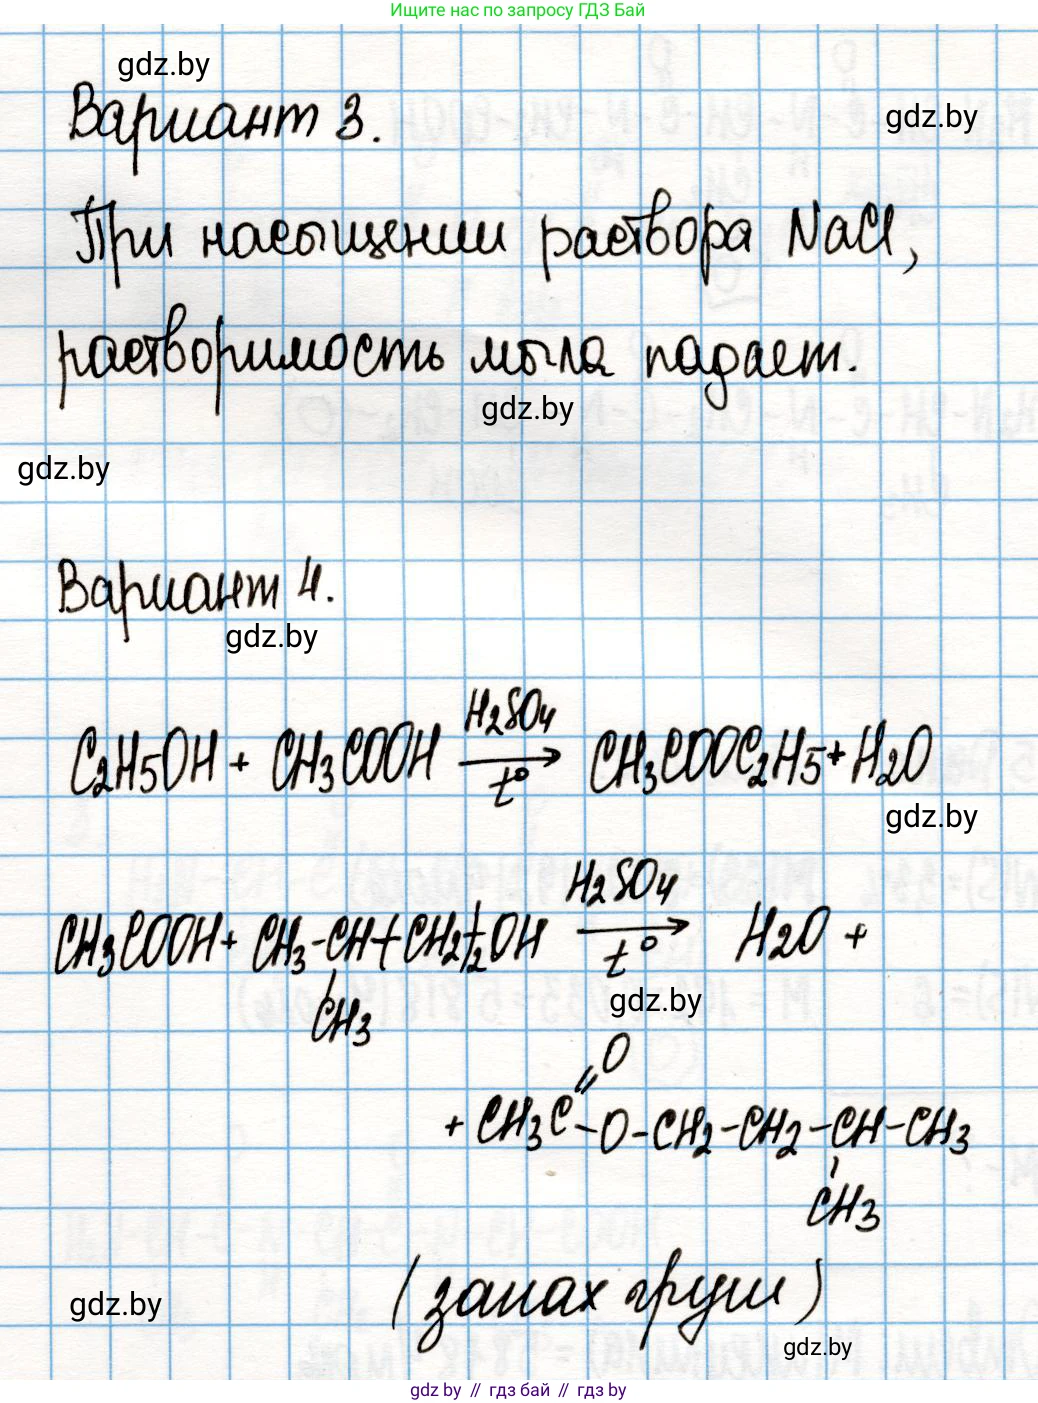 Ищите нас по запросу ГДЗ Бай
gdz.by
Вариант 3.
gdz.by
При насыщении раствора NaCl,
растворимость мыла падает.
gdz.by
gdz.by
Вариант 4.
gdz.by
H2SO4
C2H5OH + CH3COOH → CH3COOC2H5 + H2O
t°
gdz.by
H2SO4
CH3COOH + CH3-CH-(CH2)2OH → H2O +
t°
CH3
gdz.by
O
+ CH3C-O-CH2-CH2-CH-CH3
CH3
(запах груш)
gdz.by
gdz.by
gdz by // гдз бай // gdz by